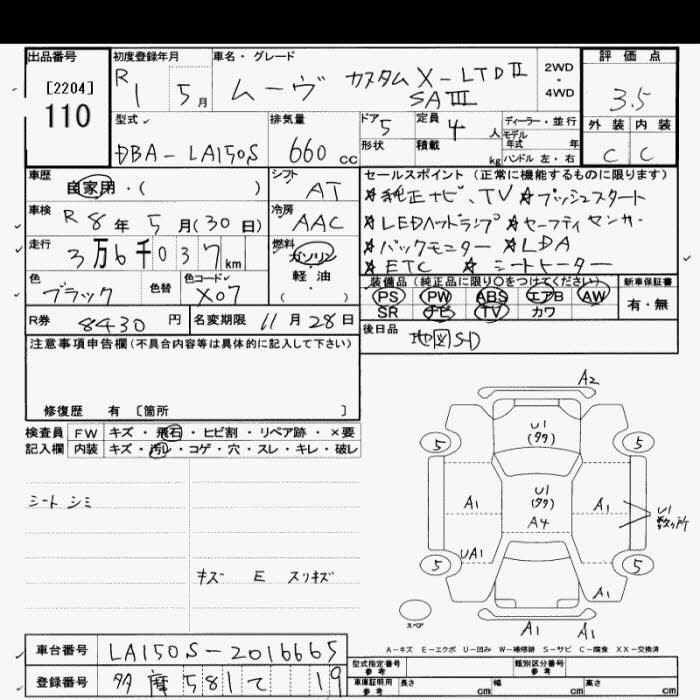 出品番号
[2204]
110
初度登録年月
R 1 5月
車名・グレード
ムーヴ カスタム X-LTDⅡ
SAⅢ
2WD
・
4WD
評価点
3.5
外装 内装
C C
型式
DBA-LA150S
排気量
660 cc
ドア 5
形状
定員 4 人
積載 kg
ディーラー・並行
モデル
年式 年
ハンドル 左・右
車歴
自家用・( )
シフト
AT
車検 R 8年 5月(30日)
冷房
AAC
走行
3万6千037km
燃料
ガソリン
軽・油
( )
色
ブラック
色替
色コード
X07
R券 8430円
名変期限 11月28日
セールスポイント(正常に機能するものに限ります)
★純正ナビ、TV ★プッシュスタート
★LEDヘッドランプ ★セーフティセンサー
★バックモニター ★LDA
★ETC ★シートヒーター
装備品(純正品に限り○をつけてください)
PS PW ABS エアB AW
SR ナビ TV カワ
新車保証書
有・無
後日品
地図SD
注意事項申告欄(不具合内容等は具体的に記入して下さい)
修復歴 有 [箇所 ]
検査員
記入欄
FW キズ・飛石・ヒビ割・リペア跡・×要
内装 キズ・汚レ・コゲ・穴・スレ・キレ・破レ
シートシミ
キズ E スリキズ
A2
U1
(99)
5 5
U1
(99)
A4
A1 A1
U1
数ヶ所
UA1
5 5
A1
A1 A1
スペア
A-キズ E-エクボ U-凹み W-補修跡 S-サビ C-腐食 XX-交換済
車台番号 LA150S-2016665
登録番号 多摩 581 て 19
型式指定番号
参考
類別区分番号
参考
車庫証明用
参考
長さ cm
幅 cm
高さ cm